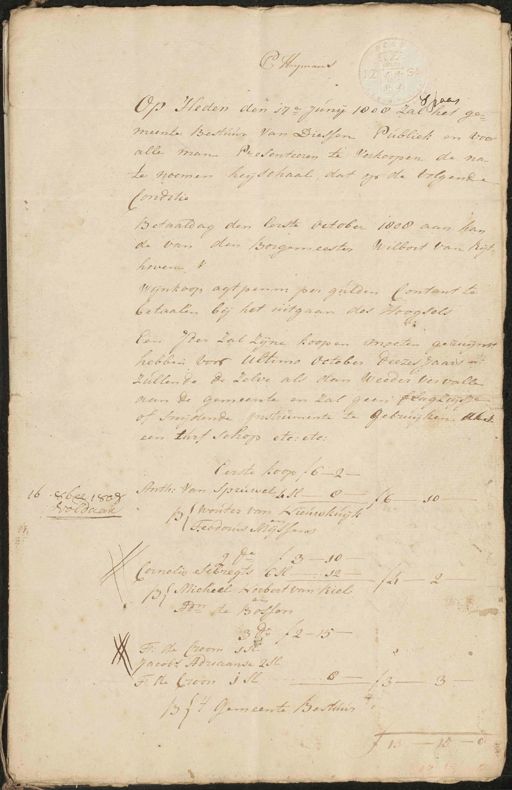 C Heymans
Op Heden den 17e Junij 1808 Zal het ge=
meente Bestuur Van Diessen Publiek en voor
alle man Presenteren te Verkoopen de na
te noemen heijschaal dat op de volgende
Conditie
Betaaldag den Eerste October 1808 aan han
de van den Borgemeester Wilbort van
hoven
Wijnkoop agt penn per gulden Contant te
betaalen bij het uitgaan des Hoogsels
Een Jder Zal Zijne koopen moeten
hebben voor Ultimo October dezes Jaars
Zullende de Zelve als dan Weeder Vervalle
aan de gemeente en Zal geen
of Snijdende instrumente te Gebruijken
een turf schop etc: etc:
Eerste koop f 6 - 2 -
16 1808
Voldaan
Anth: Van Spreuwel 4 St — 8 — f 6 — 10 —
B { Wouter van
Teodorus Thijssens
2 de f 3 — 10 —
Cornelis 6 St — 12 — f 4 — 2 —
B { Michiel van Riel
Adn de
3 de f 2 — 15 —
F: de Croom 1 St
Jacobs Adriaanse 2 St
F: de Croom 1 St — 8 — f 3 — 3 —
B { 't Gemeente Bestuur
f 13 — 15 — 0